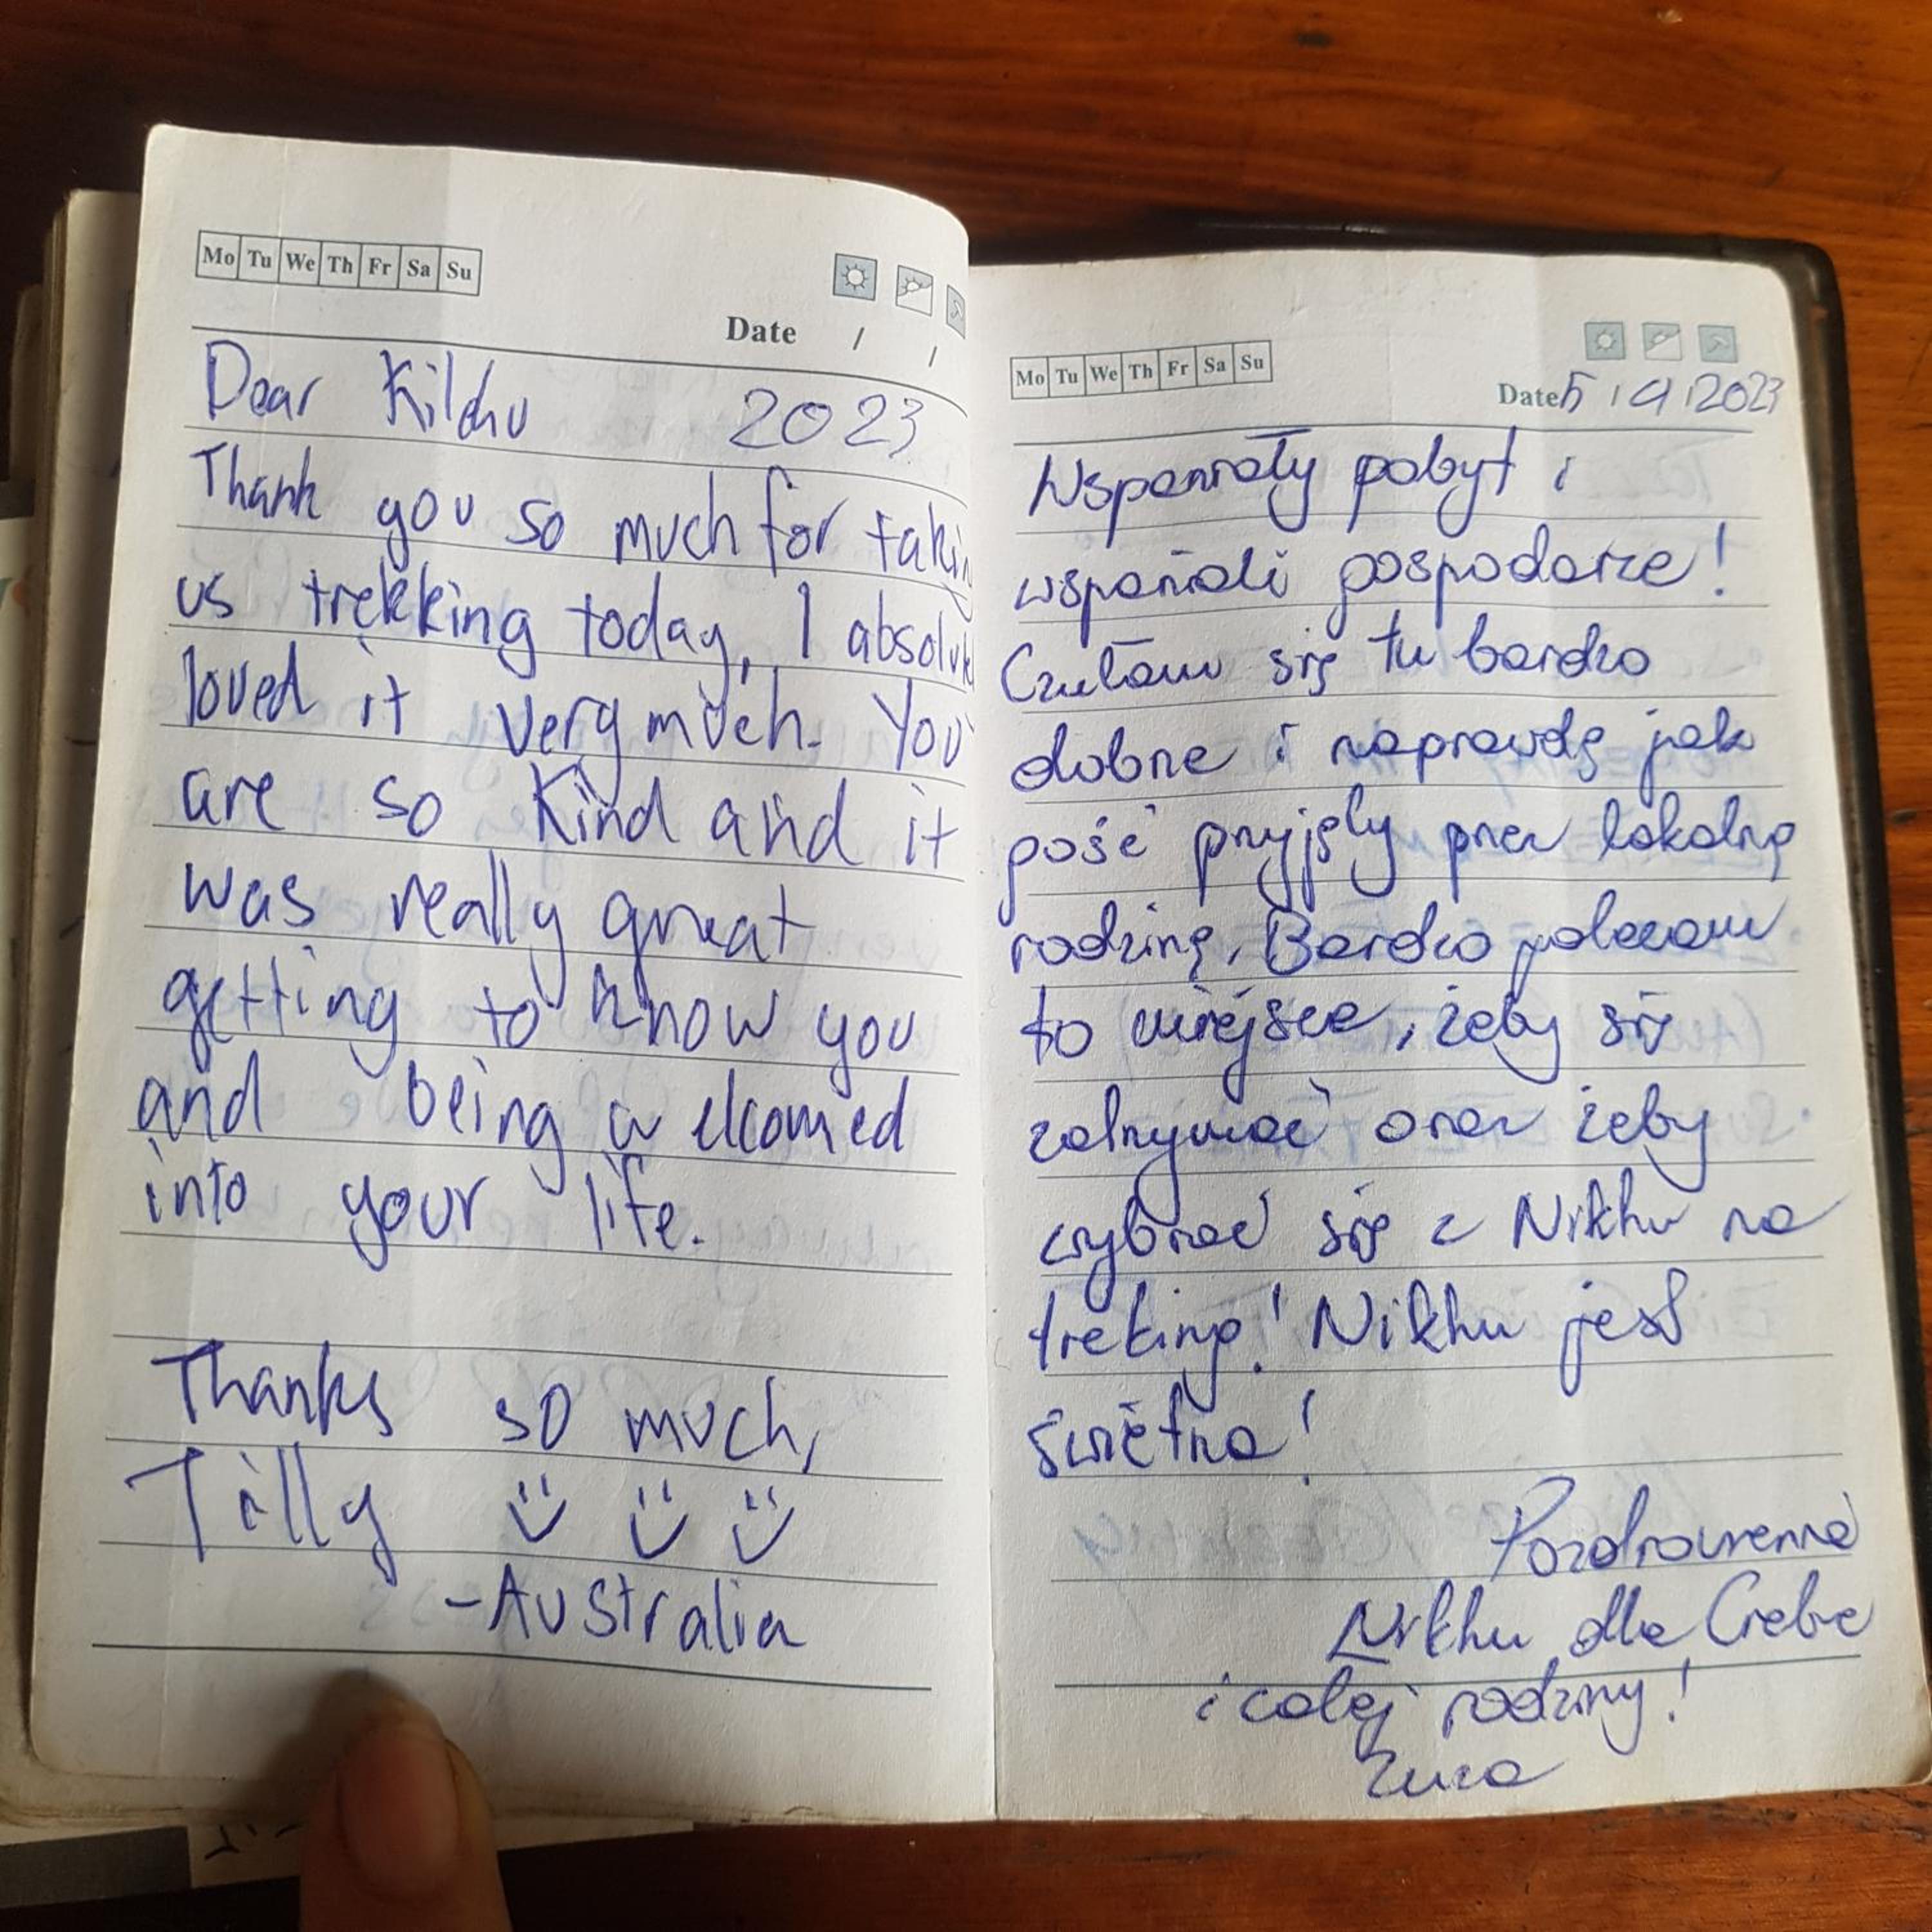 Mo Tu We Th Fr Sa Su
Date / /
Dear Kilchu 2023
Thank you so much for takin
us trekking today, I absolute
loved it very much. You
are so kind and it
was really great
getting to know you
and being welcomed
into your life.
Thanks so much,
Tilly
-Australia
Mo Tu We Th Fr Sa Su
Date 5 / 9 / 2023
Wspaniały pobyt i
wspaniali gospodarze!
Czułam się tu bardzo
dobrze i naprawdę jak
gość przyjęty przez lokalną
rodzinę. Bardzo polecam
to miejsce, żeby się
zatrzymać oraz żeby
wybrać się z Nikhu na
treking! Nikhu jest
świetna!
Pozdrowienia
Nikhu dla Ciebie
i całej rodziny!
Zuza